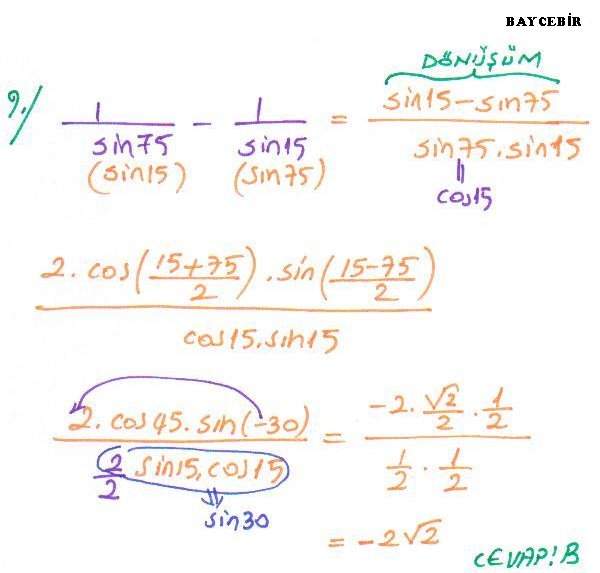 BAYCEBİR
DÖNÜŞÜM
9./ 1/sin75 - 1/sin15 = (sin15 - sin75)/(sin75 . sin15)
(sin15) (sin75)
"
cos15
2. cos((15+75)/2) . sin((15-75)/2)
cos15.sin15
2. cos45. sin(-30) / (2/2 sin15.cos15) = (-2. √2/2 . 1/2)/(1/2 . 1/2)
sin30
= -2√2
CEVAP! B